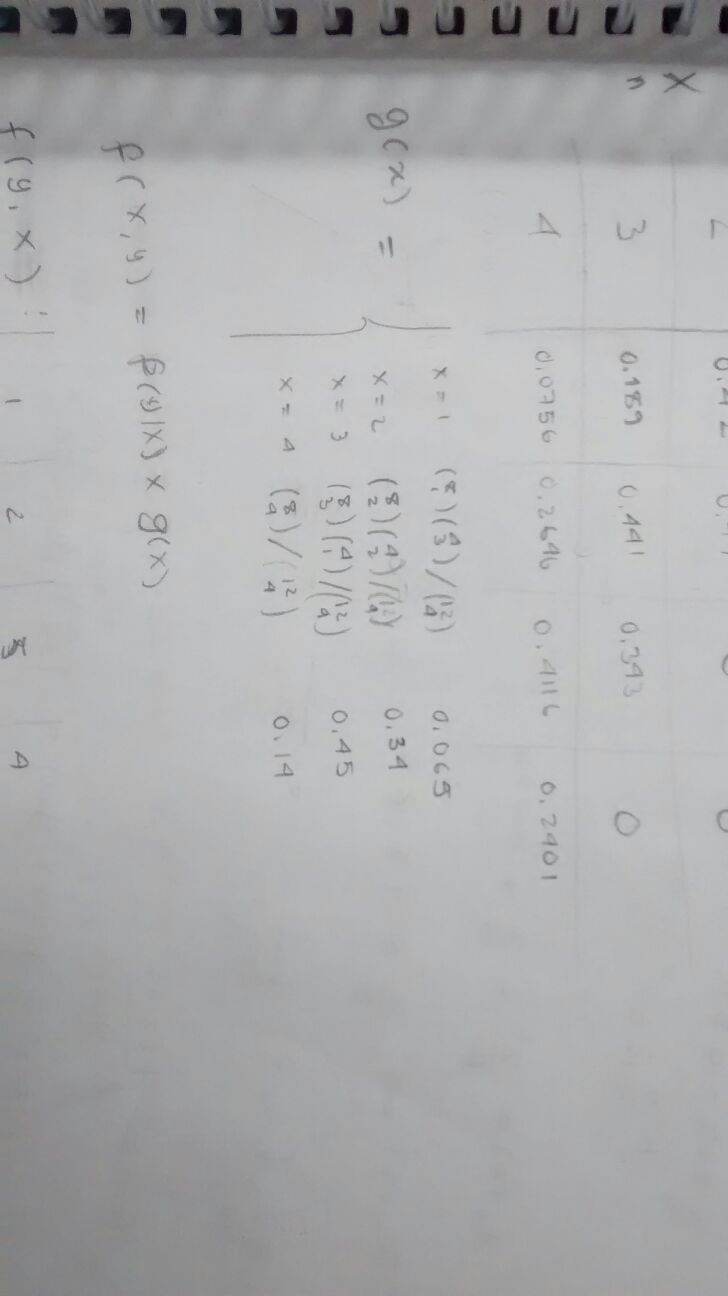 X
n
3 0.189 0.441 0.343 0
4 0.0756 0.2646 0.4116 0.2401
g(x) =
x = 1 (8 1)(4 3)/(12 4) 0.065
x = 2 (8 2)(4 2)/(12 4) 0.34
x = 3 (8 3)(4 1)/(12 4) 0.45
x = 4 (8 4)/(12 4) 0.14
f(x,y) = f(y|x) x g(x)
f(y,x) 1 2 3 4